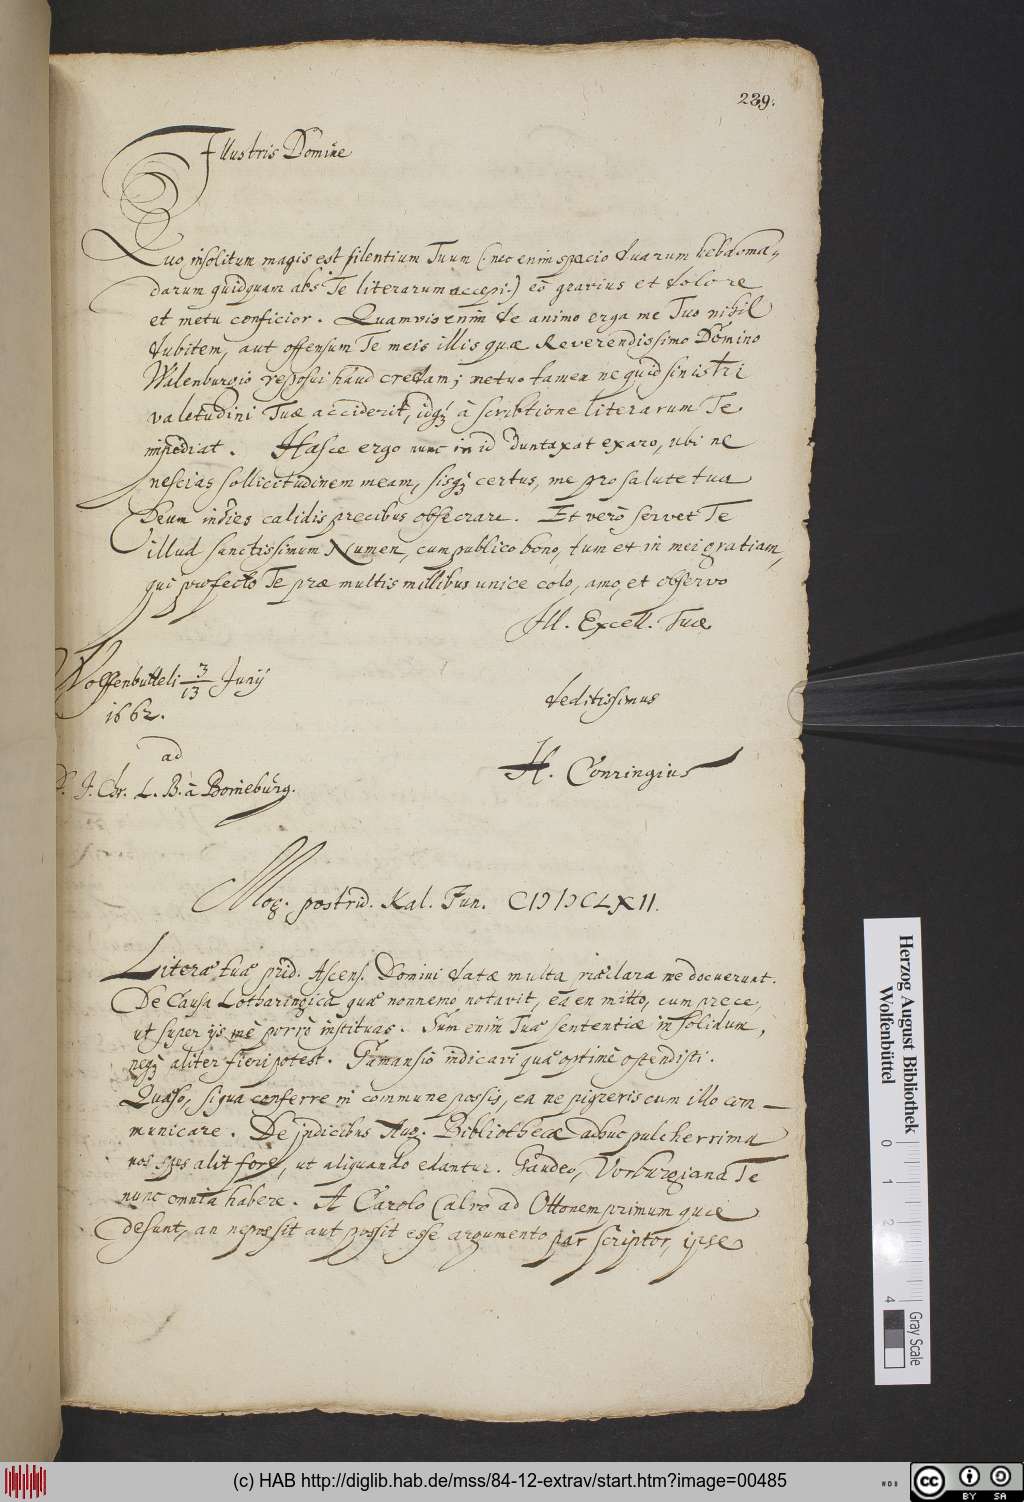 239.
Illustris Domine
Quo insolitum magis est silentium Tuum (: nec enim spacio duarum hebdoma-
darum quidquam abs Te literarum accepi:) eò gravius et dolore
et metu conficior. Quamvis enim de animo erga me Tuo nihil
dubitem, aut offensum Te meis illis quæ Reverendissimo Domino
Walenburgio reposui haud credam; metuo tamen ne quid sinistri
valetudini Tuæ acciderit, idq; à scribtione literarum Te
impediat. Hasce ergo nunc in id duntaxat exaro, ubi ne
nescias sollicitudinem meam, sisq; certus, me pro salute tua
Deum indies calidis precibus obsecrare. Et verò servet Te
illud sanctissimum Numen, cum publico bono, tum et in mei gratiam,
qui profecto Te præ multis millibus unice colo, amo, et observo
Ill. Excell. Tuæ
Wolffenbutteli 3/13 Junij
1662.
deditissimus
ad
J. Chr. L. B. à Boineburg.
H. Conringius
Mog. postrid. Kal. Jun. CIƆ IƆ CLXII.
Literæ tuæ prid. Ascens. Domini datæ multa præclara me docuerunt.
De Causa Lotharingica quæ nonnemo notavit, ea en mitto, cum prece,
ut super ijs me porrò instituas. Sum enim Tuæ sententiæ in solidum,
neq; aliter fieri potest. Gamansio indicari quæ optimè ostendisti.
Quæso, siqua conferre in commune possis, ea ne pigreris cum illo com-
municare. De indicibus Aug. Bibliothecæ adhuc pulcherrima
nos spes alit fore, ut aliquando edantur. Gaudeo, Vorburgiana Te
nunc omnia habere. A Carolo Calvo ad Ottonem primum quæ
desunt, an ne possit aut possit esse argumento par scriptor, ipse
Herzog August Bibliothek
Wolfenbüttel
0 1 2 4
Gray Scale
(c) HAB http://diglib.hab.de/mss/84-12-extrav/start.htm?image=00485
WDB
cc BY SA